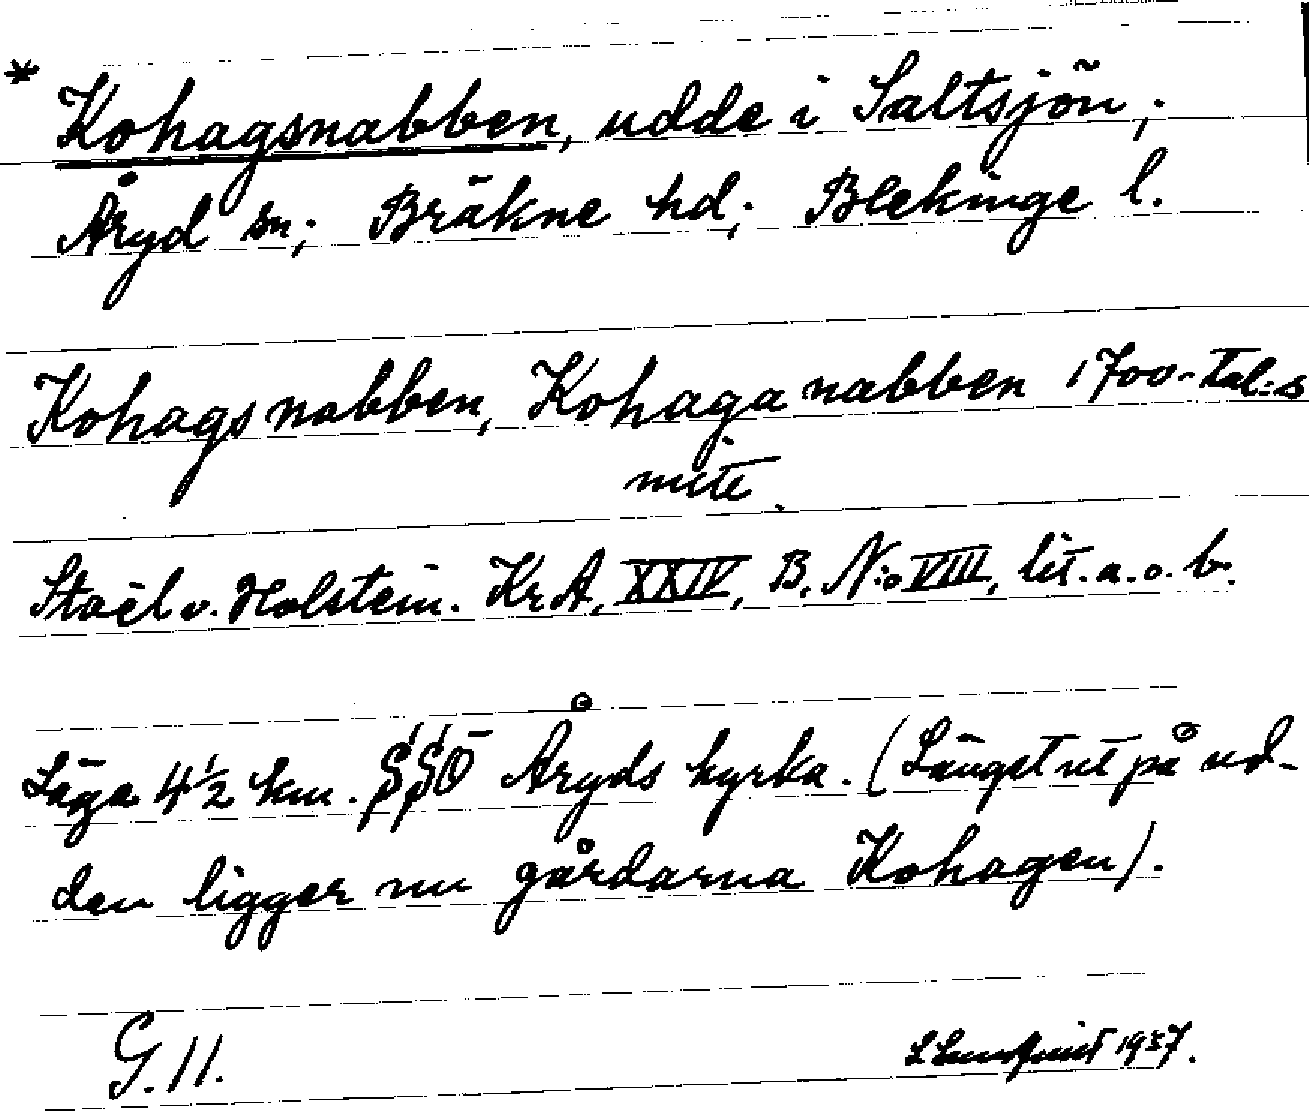 * Kohagsnabben, udde i Saltsjön;
Åryd sn; Bräkne hd; Blekinge l.
Kohagsnabben, Kohaganabben 1700-tal:s
mitt.
Stael v. Holstein. KrA, XXIV, B. N:o VIII, lit. a. o. b.
Läga 4½ km. SSÖ Åryds kyrka. (Längst ut på ud-
den ligger nu gårdarna Kohagen).
G. 11.
L Lundquist 1937.